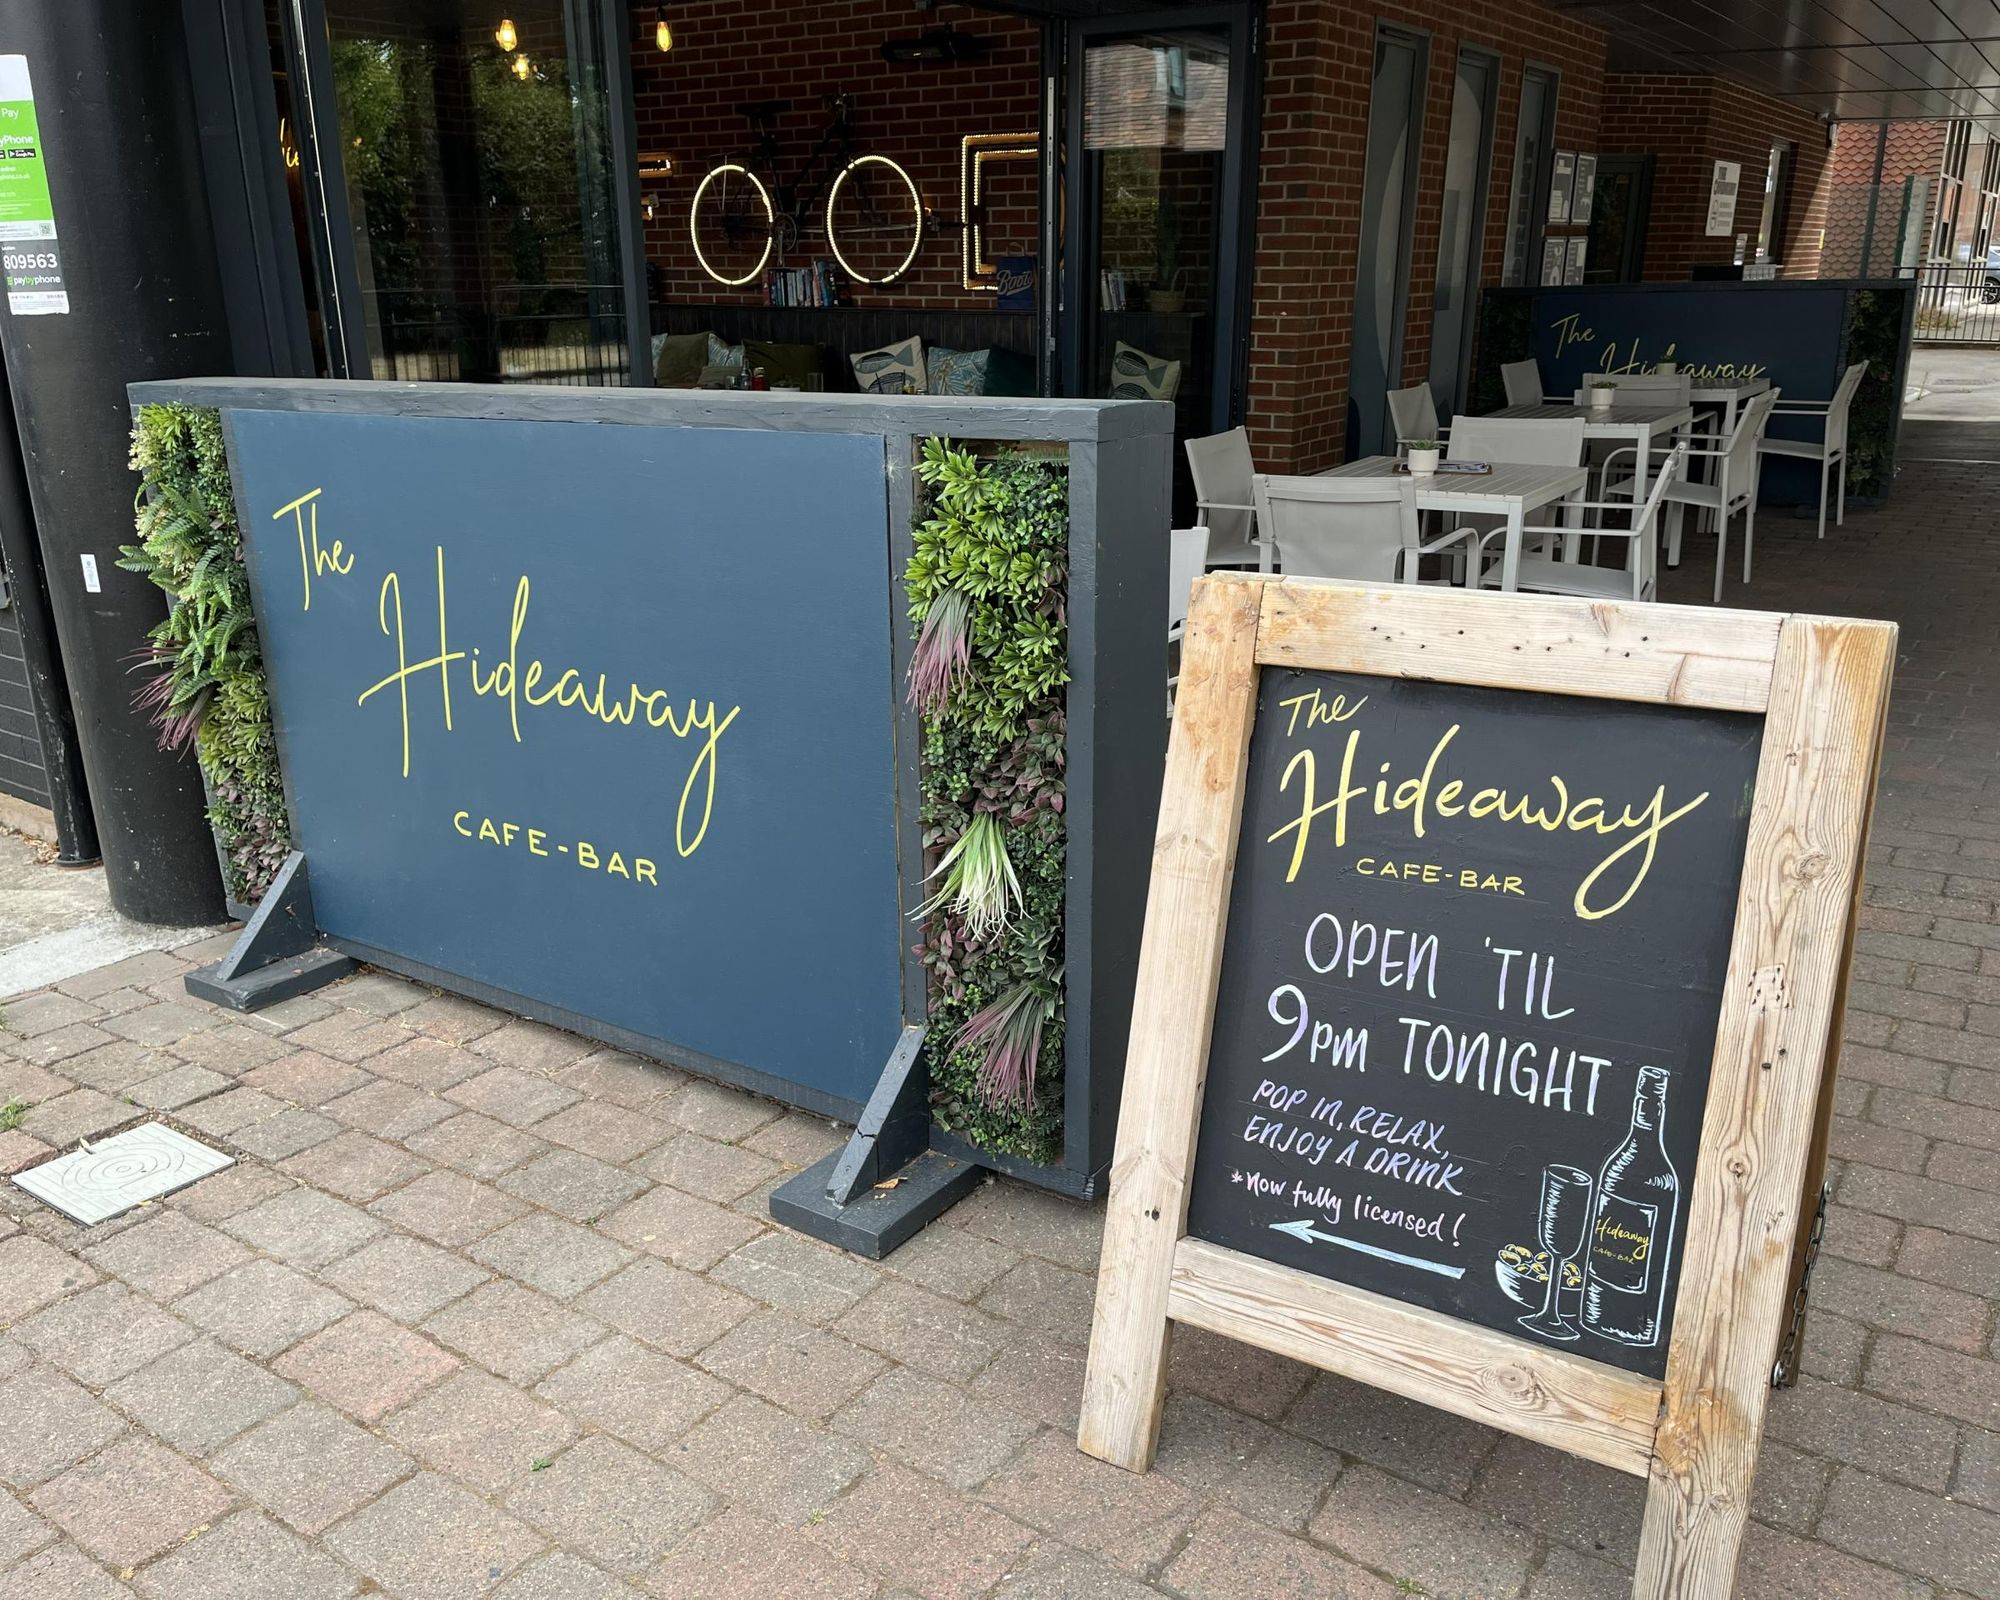 Pay
yPhone
809563
paybyphone
Boots
The
Hideaway
The
Hideaway
CAFE-BAR
The
Hideaway
CAFE-BAR
OPEN 'TIL
9pm TONIGHT
POP IN, RELAX,
ENJOY A DRINK
*Now fully licensed!
Hideaway
CAFE-BAR